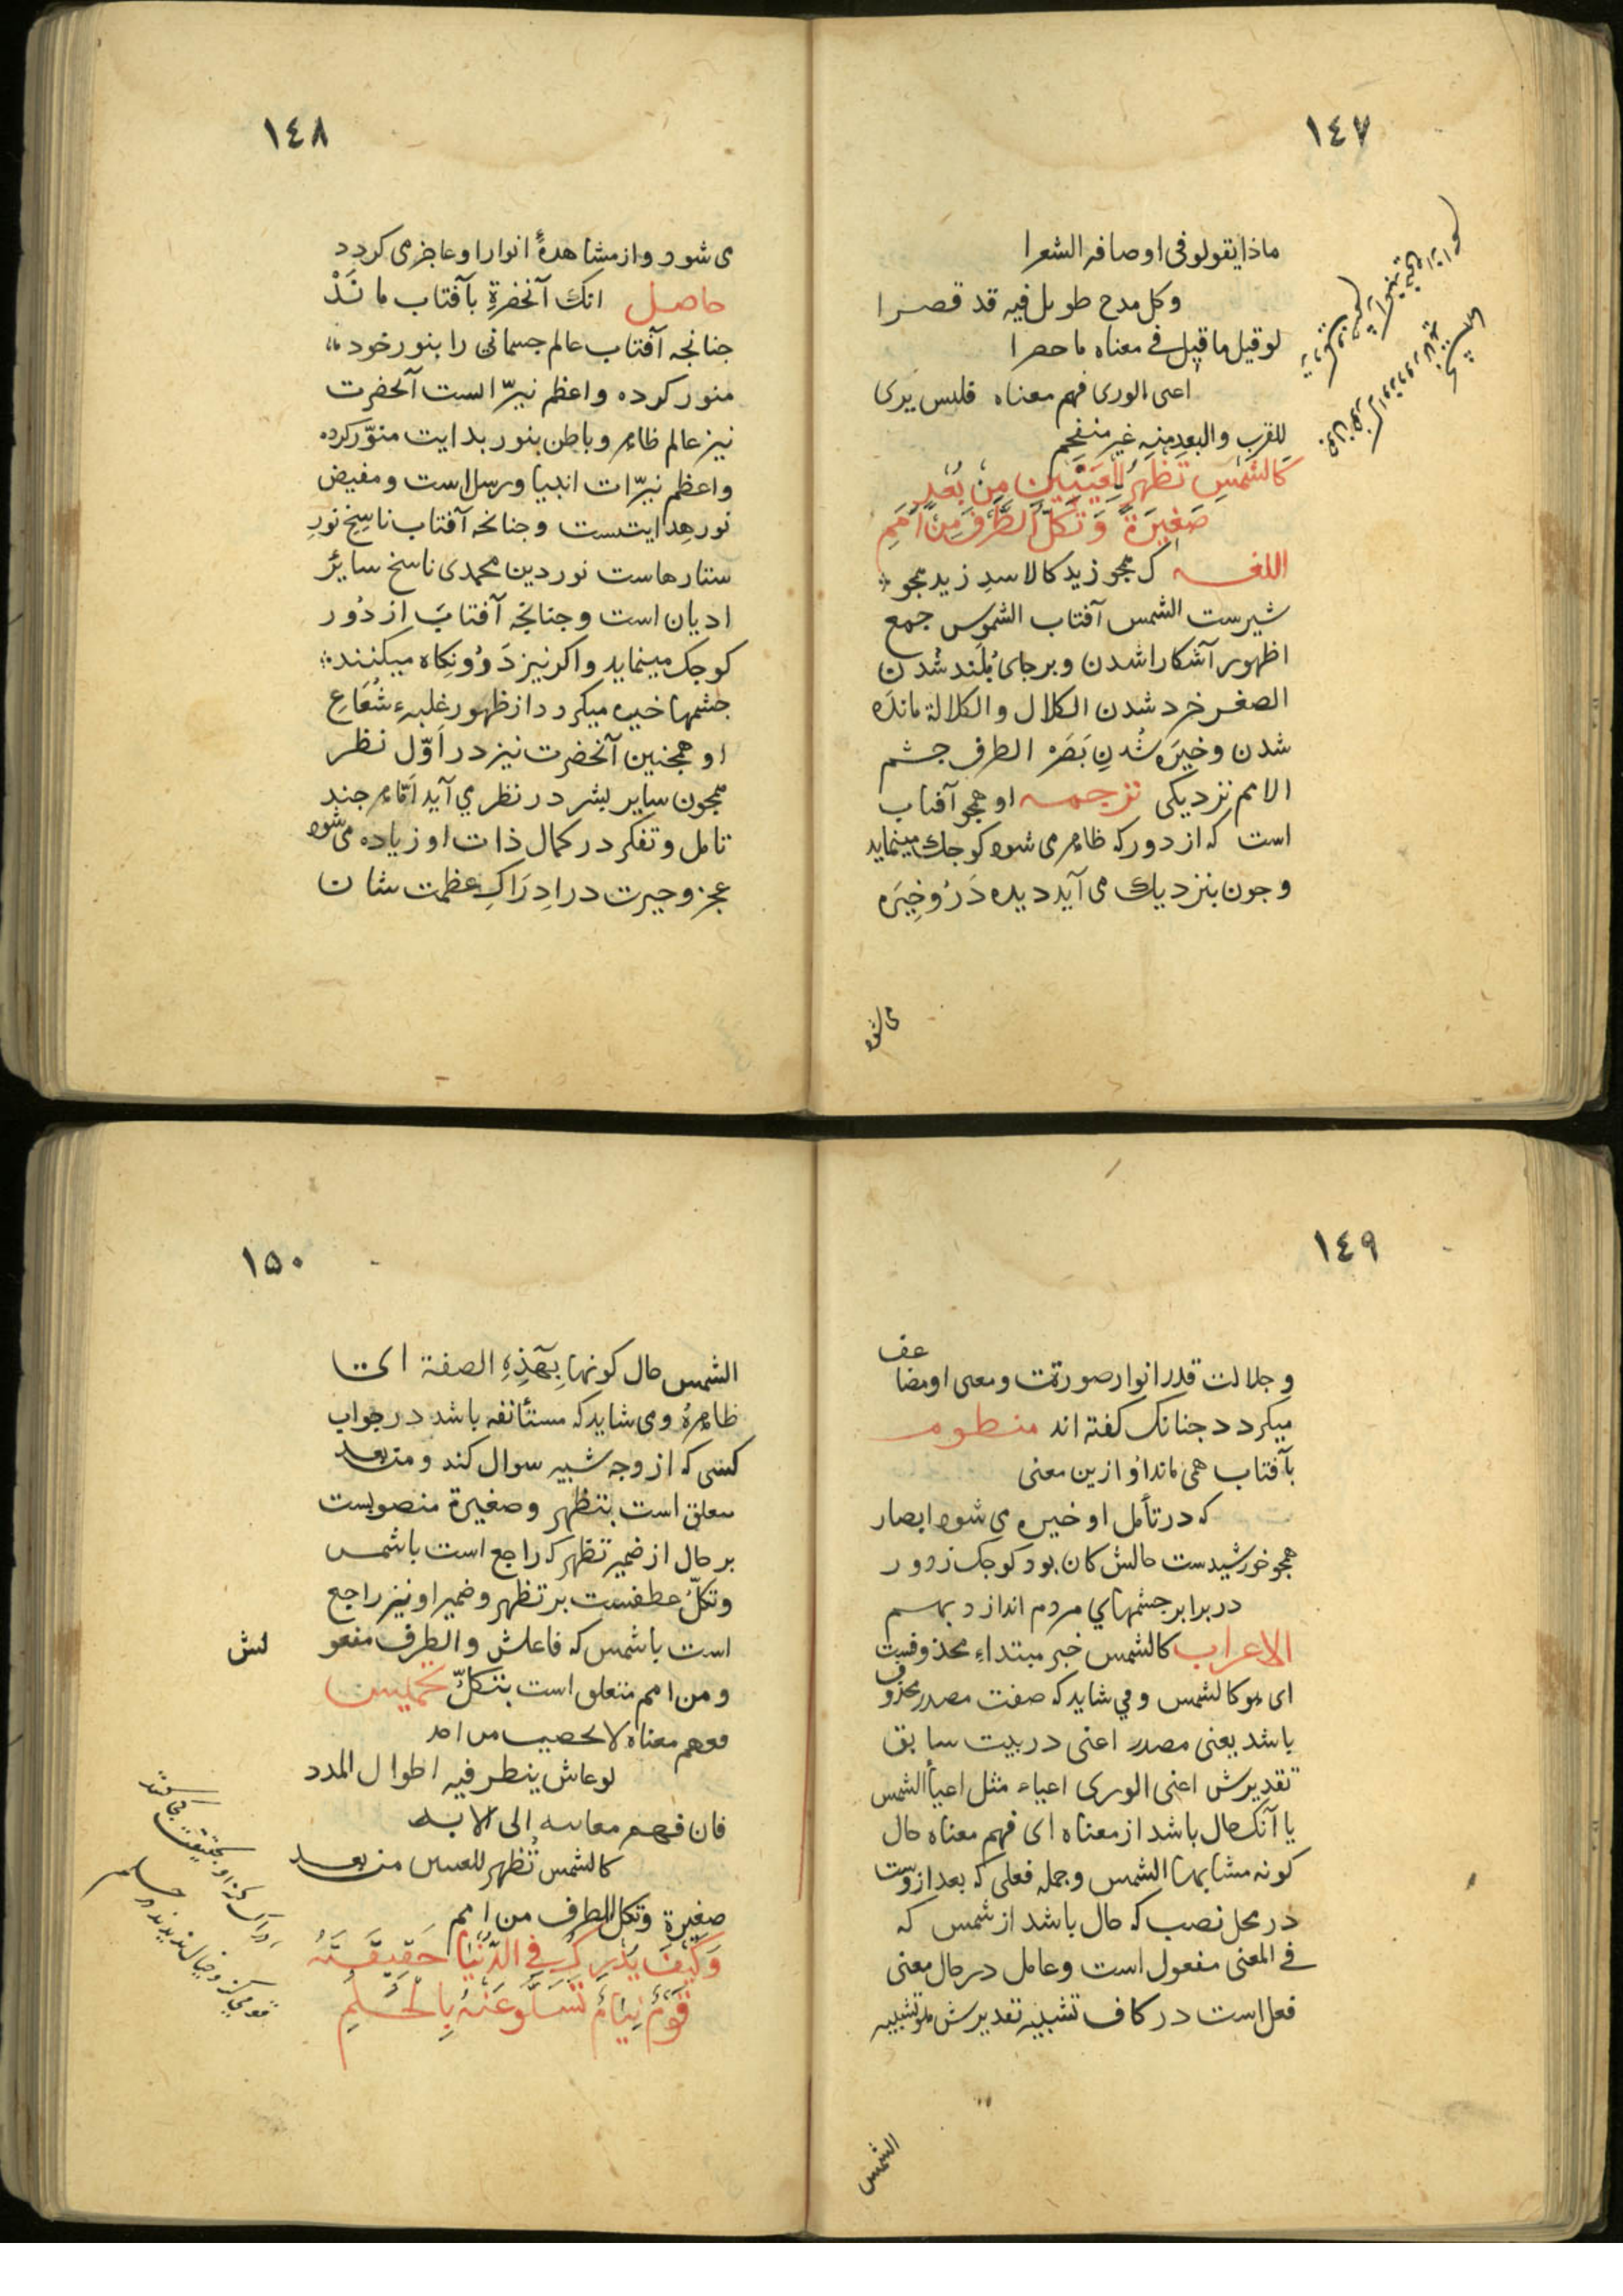 ١٤٧
ماذا يقولو فى اوصافه الشعرا
وكل مدح طويل فيه قد قصرا
لو قيل ما قيل فى معناه ما حصرا
اعى الورى فهم معناه فليس يرى
للقرب والبعد منه غير منفحم
كَالشَّمْسِ تَظْهَرُ لِلْعَيْنَيْنِ مِنْ بُعُدٍ
صَغِيرَةً وَتُكِلُّ الطَّرْفَ مِنْ اَمَمِ
اللغه ك همجو زيد كالاسدِ زيد همجو
شيرست الشمس آفتاب الشموس جمع
اظهور آشكارا شدن و بر جاى بُلَند شُدن
الصغر خرد شدن الكلال و الكلالة مانده
شدن و خيَره شُدنِ بَصَره الطرف جشم
الامم نزديكى ترجمه او همجو آفتاب
است كه از دور كه ظاهر مى شود كوجك مينمايد
و جون بنزديك مى آيد ديده دَرُو خِيَره
مى شود
١٤٨
مى شود و از مشاهدهٔ انوار او عاجز مى كردد
حاصل انك آنحضرة بآفتاب مانَدْ
جنانجه آفتاب عالم جسمانى را بنور خود
منور كرده و اعظم نيرّ الست آنحضرت
نيز عالم ظاهر و باطن بنور بدايت منوّر كرده
و اعظم نيرّات انبيا و رسل است و مفيض
نور هدايتست و جنانجه آفتاب ناسخ نورِ
ستارهاست نور دين محمدى ناسخ سائر
اديان است و جنانجه آفتاب از دُور
كوجك مينمايد و اكر نيز دَروُ نكاه ميكنند
جشمها خيره ميكردد از ظهور غلبهء شُعَاعِ
او همجنين آنحضرت نيز در اَوّل نظر
همجون ساير بشر در نظر مي آيد اَمّا هر جند
تامل و تفكر در كمال ذات او زياده مى شود
عجز و حيرت در اِدرَاكِ عظمت شان
١٤٩
و جلالت قدر انوار صورت و معنى او مضاعف
ميكردد جنانك كفته اند منظومه
بآفتاب همى ماند اُو ازين معنى
كه در تأمل او خيره مى شود ابصار
همجو خورشيدست حالش كان بود كوجك ز دور
در برابر جشمهاي مردم اندازد بهم
الاعراب كالشمس خبر مبتداءِ محذوفست
اى هو كالشمس و مي شايد كه صفت مصدر محذوف
باشد يعنى مصدر اعنى در بيت سابق
تقديرش اعنى الورى اعياء مثل اعيأ الشمس
يا آنك حال باشد از معناه اى فهم معناه حال
كونه مشابها الشمس و جمله فعلى كه بعد از وست
در محل نصب كه حال باشد از شمس كه
فى المعنى مفعول است و عامل در حال معنى
فعل است در كاف تشبيه تقديرش هو تشبيه
الشمس
١٥٠
الشمس حال كونها بِهَذِهِ الصفة
ظاهرهُ و مى شايد كه مستأنفه باشد در جواب
كسى كه از وجه شبيه سوال كند و من بعد
متعلق است بتظهر و صغيرة منصوبست
بر حال از ضمير تظهر كه راجع است باشمس
و تكلُّ عطفست بر تظهر و ضمير او نيز راجع
است باشمس كه فاعلش و الطرف مفعولش
و من امم متعلق است بتكلُّ تخميس
ففهم معناه لا يحصيه من احد
لو عاش ينظر فيه اطوال المدد
فان فهم معانيه الى الابد
كالشمس تُظهر للعينين من بعد
صغيرة وتكل الطرف من امم
وَكَيْفَ يُدْرِكُ فِي الدُّنْيَا حَقِيقَتَهُ
قَوْمٌ نِيَامٌ تَسَلَّوْ عَنْهُ بِالْحُلُمِ